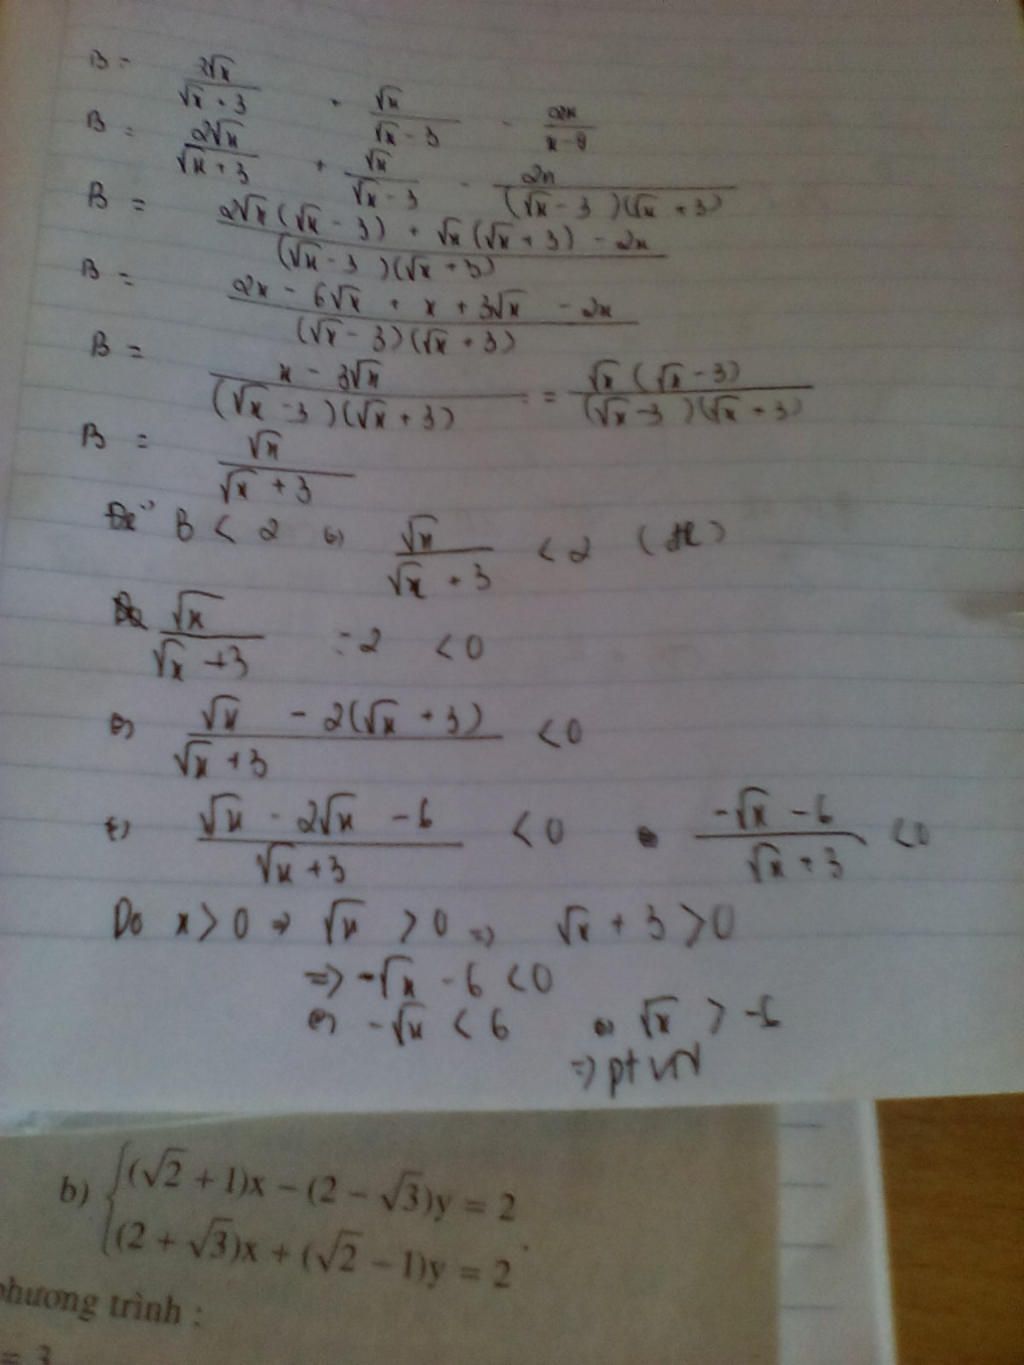 B = 2√x/(√x + 3) + √x/(√x - 3) - 2x/(x - 9)
B = 2√x/(√x + 3) + √x/(√x - 3) - 2x/((√x - 3)(√x + 3))
B = (2√x(√x - 3) + √x(√x + 3) - 2x)/((√x - 3)(√x + 3))
B = (2x - 6√x + x + 3√x - 2x)/((√x - 3)(√x + 3))
B = (x - 3√x)/((√x - 3)(√x + 3)) = √x(√x - 3)/((√x - 3)(√x + 3))
B = √x/(√x + 3)
B < 2 ⇔ √x/(√x + 3) < 2
√x/(√x + 3) - 2 < 0
⇔ √x - 2(√x + 3)/(√x + 3) < 0
⇔ (√x - 2√x - 6)/(√x + 3) < 0 (-√x - 6)/(√x + 3) < 0
Do x > 0 ⇒ √x > 0 ⇒ √x + 3 > 0
⇒ -√x - 6 < 0
⇔ -√x < 6 ⇔ √x > -6
⇒ pt VN
b) {(√2 + 1)x - (2 - √3)y = 2
(2 + √3)x + (√2 - 1)y = 2.
phương trình :
= 3